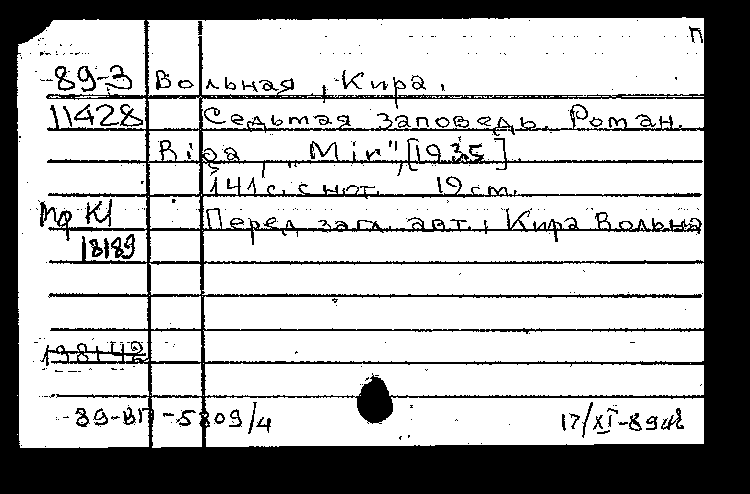 П
89-3 Вольная, Кира.
11428 Седьмая заповедь. Роман.
Riga, „Mir", [1935].
141 с. с нот. 19 см.
Мф К1 Перед загл. авт.: Кира Вольна
18189
198142
89-ВП-5809/4 17/XI-89